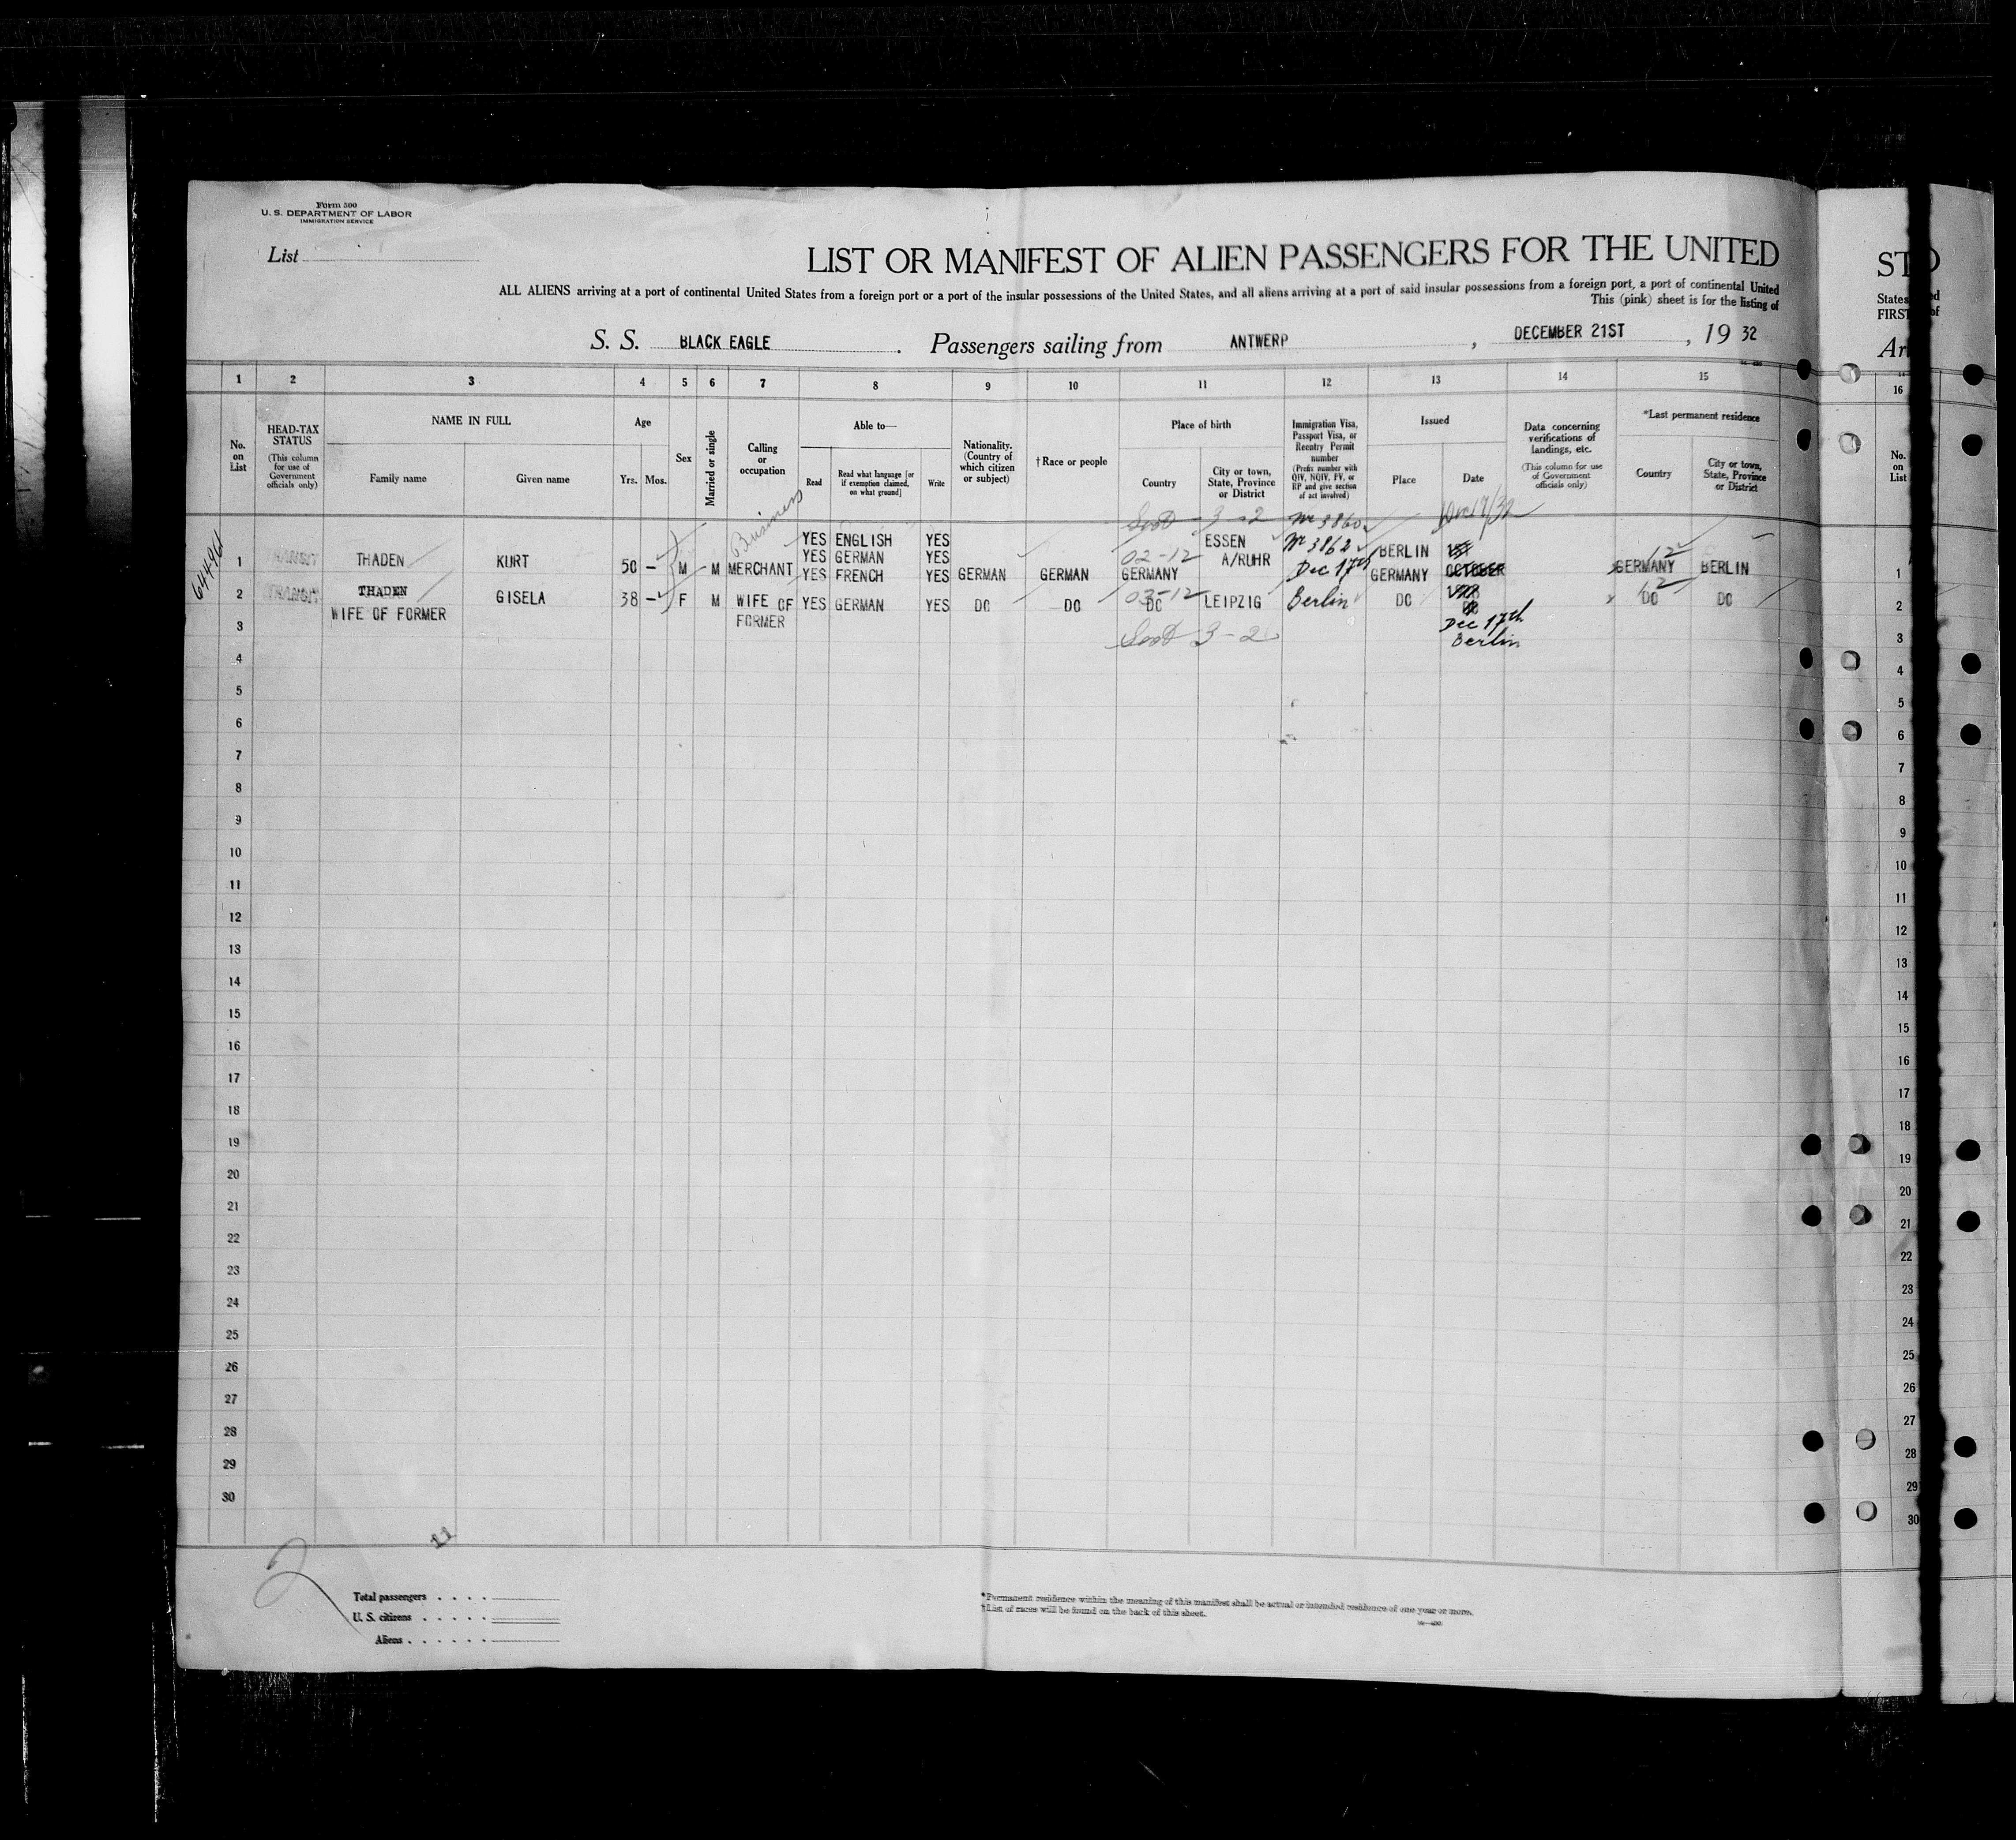 Form 500
U. S. DEPARTMENT OF LABOR
IMMIGRATION SERVICE
List
LIST OR MANIFEST OF ALIEN PASSENGERS FOR THE UNITED
ALL ALIENS arriving at a port of continental United States from a foreign port or a port of the insular possessions of the United States, and all aliens arriving at a port of said insular possessions from a foreign port, a port of continental United
This (pink) sheet is for the listing of
S. S. BLACK EAGLE. Passengers sailing from ANTWERP, DECEMBER 21ST, 19 32
1 2 3 4 5 6 7 8 9 10 11 12 13 14 15
No. on List
HEAD-TAX STATUS
(This column for use of Government officials only)
NAME IN FULL
Family name
Given name
Age
Yrs. Mos.
Sex
Married or single
Calling or occupation
Able to—
Read
Read what language [or if exemption claimed, on what ground]
Write
Nationality. (Country of which citizen or subject)
†Race or people
Place of birth
Country
City or town, State, Province or District
Immigration Visa, Passport Visa, or Reentry Permit number
(Prefix number with QIV, NQIV, PV, or RP and give section of act involved)
Issued
Place
Date
Data concerning verifications of landings, etc.
(This column for use of Government officials only)
*Last permanent residence
Country
City or town, State, Province or District
Business
3 - 2
Nr 3860
YES ENGLISH YES
ESSEN
644961
1 TRANSIT THADEN KURT 50 - M M MERCHANT
YES GERMAN YES
02-12
A/RUHR
Nr 3862
BERLIN
12
YES FRENCH YES GERMAN GERMAN GERMANY
Dec 17th
GERMANY OCTOBER GERMANY BERLIN
2 TRANSIT THADEN GISELA 38 - F M WIFE OF YES GERMAN YES DO DO DO LEIPZIG Berlin DO DO DO
03-12
12
WIFE OF FORMER
FORMER
Dec 17th
Berlin
3 - 2
3
4
5
6
7
8
9
10
11
12
13
14
15
16
17
18
19
20
21
22
23
24
25
26
27
28
29
30
2
11
Total passengers
U. S. citizens
Aliens
*Permanent residence within the meaning of this manifest shall be actual or intended residence of one year or more.
†List of races will be found on the back of this sheet.
ST
States
FIRST
Ar
16
No. on List
1
2
3
4
5
6
7
8
9
10
11
12
13
14
15
16
17
18
19
20
21
22
23
24
25
26
27
28
29
30